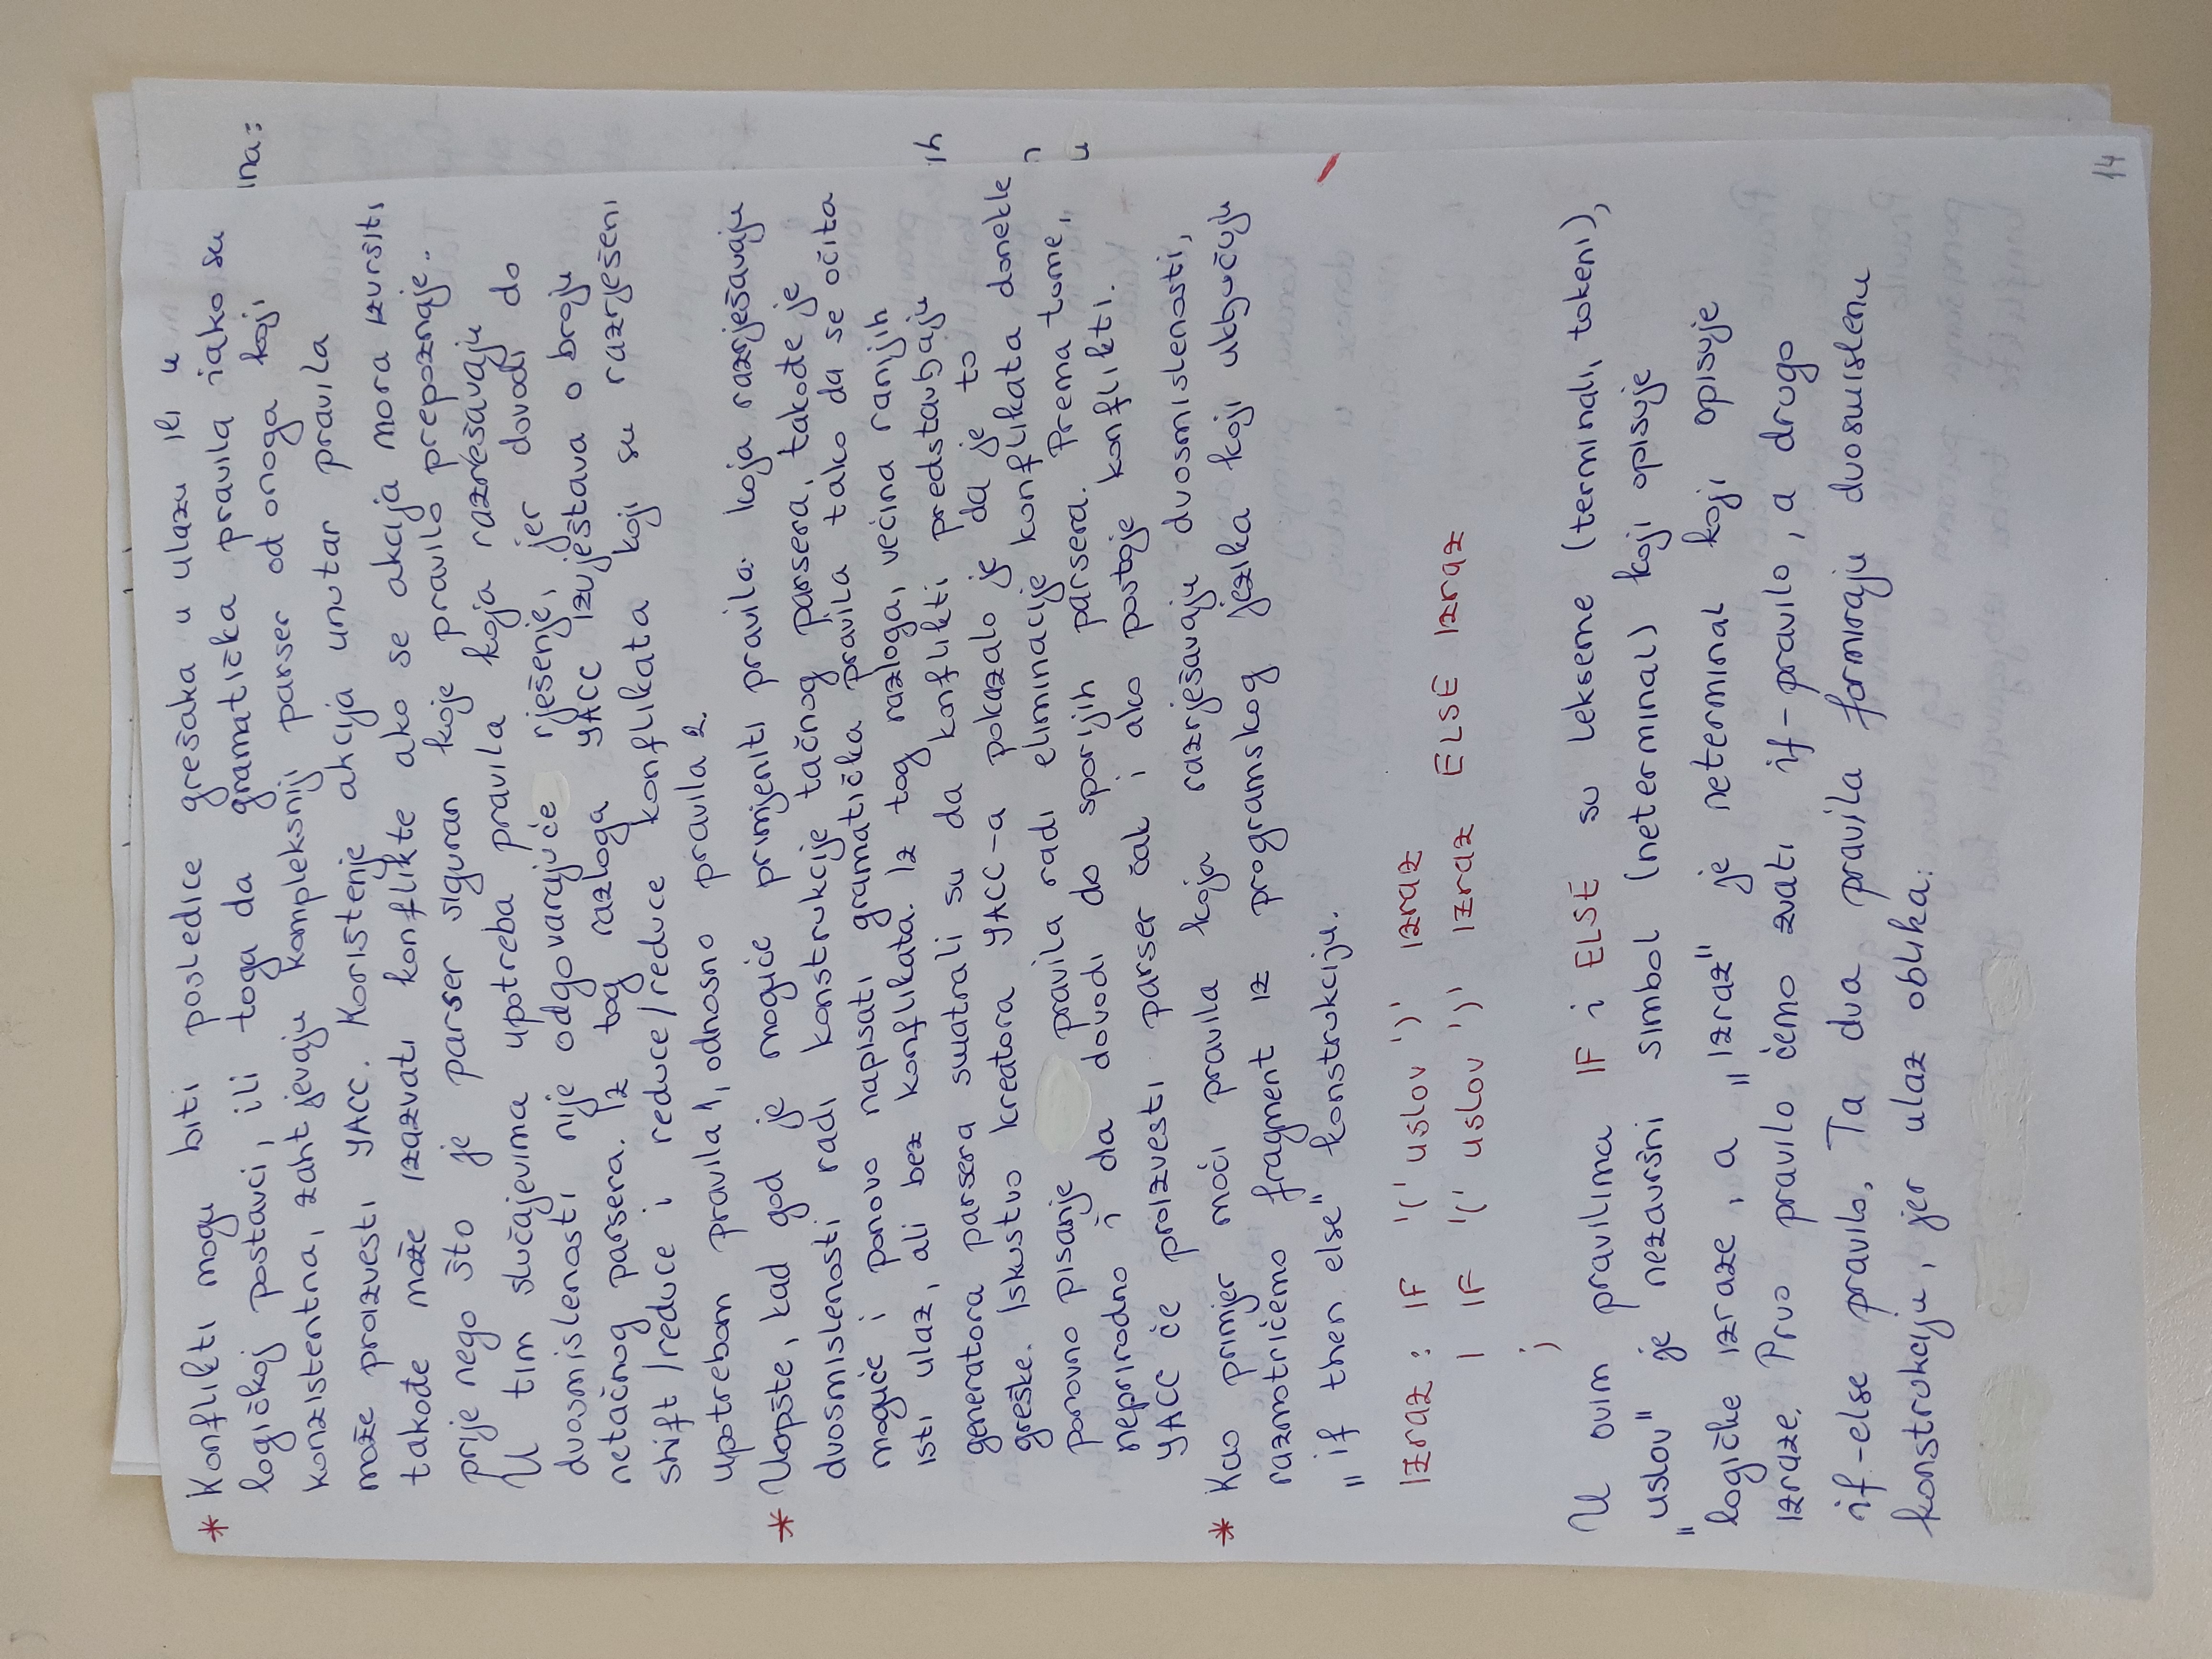 * Konflikti mogu biti posledice grešaka u ulazu ili u
logičkoj postavci, ili toga da gramatička pravila iako su
konzistentna, zahtjevaju kompleksniji parser od onoga koji
može proizvesti YACC. Korištenje akcija unutar pravila
takođe može izazvati konflikte ako se akcija mora izvršiti
prije nego što je parser siguran koje pravilo prepoznaje.
U tim slučajevima upotreba pravila koja razrešavaju
dvosmislenosti nije odgovarajuće rješenje, jer dovodi do
netačnog parsera. Iz tog razloga YACC izvještava o broju
shift/reduce i reduce/reduce konflikata koji su razrješeni
upotrebom pravila 1, odnosno pravila 2.
* Uopšte, kad god je moguće primjeniti pravila koja razrješavaju
dvosmislenosti radi konstrukcije tačnog parsera, takođe je
moguće i ponovo napisati gramatička pravila tako da se očita
isti ulaz, ali bez konflikata. Iz tog razloga, većina ranijih
generatora parsera smatrali su da konflikti predstavljaju
greške. Iskustvo kreatora YACC-a pokazalo je da je to
ponovno pisanje pravila radi eliminacije konflikata donekle
neprirodno i da dovodi do sporijih parsera. Prema tome,
YACC će proizvesti parser čak i ako postoje konflikti.
* Kao primjer moći pravila koja razrješavaju dvosmislenosti,
razmotrićemo fragment iz programskog jezika koji uključuju
"if then else" konstrukciju.
izraz : IF '(' uslov ')' izraz
| IF '(' uslov ')' izraz ELSE izraz
;
U ovim pravilima IF i ELSE su lekseme (terminali, tokeni),
"uslov" je nezavršni simbol (neterminal) koji opisuje
logičke izraze, a "izraz" je neterminal koji opisuje
izraze. Prvo pravilo ćemo zvati if-pravilo, a drugo
if-else pravilo. Ta dva pravila formiraju dvosmislenu
konstrukciju, jer ulaz oblika:
14